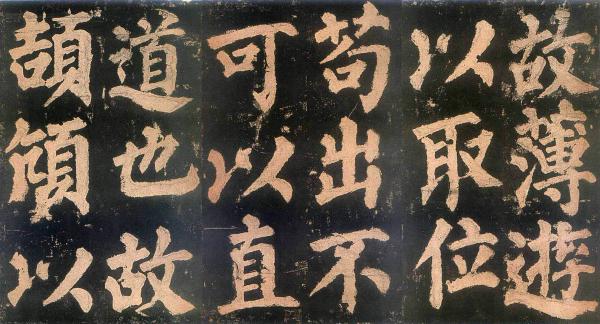 故薄遊
以取位
苟出不
可以直
道也故
頡頏以